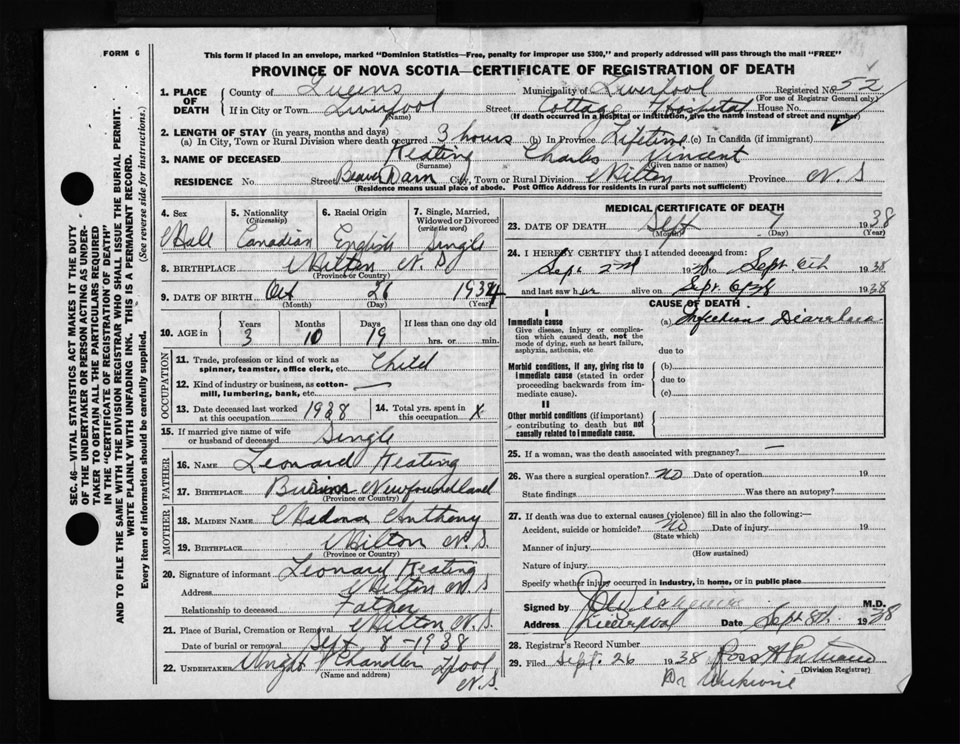 FORM 6
This form if placed in an envelope, marked "Dominion Statistics—Free, penalty for improper use $300," and properly addressed will pass through the mail "FREE"
PROVINCE OF NOVA SCOTIA—CERTIFICATE OF REGISTRATION OF DEATH
1. PLACE OF DEATH
County of Queens Municipality of Liverpool Registered No. 52
(For use of Registrar General only)
If in City or Town Liverpool Street Cottage Hospital House No.
(Name) (If death occurred in a Hospital or institution, give the name instead of street and number)
2. LENGTH OF STAY (in years, months and days)
(a) In City, Town or Rural Division where death occurred 3 hours (b) In Province Lifetime (c) In Canada (if immigrant)
3. NAME OF DECEASED Keating Charles Vincent
(Surname) (Given name or names)
RESIDENCE No. Street Beaver Dam City, Town or Rural Division Milton Province N.S
(Residence means usual place of abode. Post Office Address for residents in rural parts not sufficient)
4. Sex Male
5. Nationality (Citizenship) Canadian
6. Racial Origin English
7. Single, Married, Widowed or Divorced (write the word) Single
8. BIRTHPLACE Milton N.S
(Province or Country)
9. DATE OF BIRTH Oct 26 1934
(Month) (Day) (Year)
10. AGE in Years Months Days If less than one day old
3 10 19 hrs. or min.
OCCUPATION
11. Trade, profession or kind of work as spinner, teamster, office clerk, etc. Child
12. Kind of industry or business, as cotton-mill, lumbering, bank, etc. —
13. Date deceased last worked at this occupation 1938
14. Total yrs. spent in this occupation X
15. If married give name of wife or husband of deceased Single
FATHER
16. NAME Leonard Keating
17. BIRTHPLACE Newfoundland
(Province or Country)
MOTHER
18. MAIDEN NAME Anthony
19. BIRTHPLACE Milton N.S.
(Province or Country)
20. Signature of informant Leonard Keating
Address Milton N.S
Relationship to deceased Father
21. Place of Burial, Cremation or Removal Milton N.S.
Date of burial or removal Sept 8 - 1938
22. UNDERTAKER Wright Chandler L'pool N.S.
(Name and address)
MEDICAL CERTIFICATE OF DEATH
23. DATE OF DEATH Sept 7 1938
(Month) (Day) (Year)
24. I HEREBY CERTIFY that I attended deceased from:
Sept 2nd 1938 to Sept. 6th 1938
and last saw h alive on Sept. 6th 1938
CAUSE OF DEATH
I
Immediate cause (a) Infectious Diarrhoea
Give disease, injury or complication which caused death, not the mode of dying, such as heart failure, asphyxia, asthenia, etc
due to
Morbid conditions, if any, giving rise to immediate cause (stated in order proceeding backwards from immediate cause).
(b)
due to
(c)
II
Other morbid conditions (if important) contributing to death but not causally related to immediate cause.
25. If a woman, was the death associated with pregnancy? —
26. Was there a surgical operation? NO Date of operation 19
State findings Was there an autopsy?
27. If death was due to external causes (violence) fill in also the following:—
Accident, suicide or homicide? No Date of injury 19
(State which)
Manner of injury
(How sustained)
Nature of injury
Specify whether injury occurred in industry, in home, or in public place
Signed by M.D.
Address Liverpool Date Sept 8th 1938
28. Registrar's Record Number
29. Filed Sept. 26 1938
(Division Registrar)
SEC. 46—VITAL STATISTICS ACT MAKES IT THE DUTY
OF THE UNDERTAKER OR PERSON ACTING AS UNDER-
TAKER TO OBTAIN ALL THE PARTICULARS REQUIRED
IN THE "CERTIFICATE OF REGISTRATION OF DEATH"
AND TO FILE THE SAME WITH THE DIVISION REGISTRAR WHO SHALL ISSUE THE BURIAL PERMIT.
WRITE PLAINLY WITH UNFADING INK. THIS IS A PERMANENT RECORD.
Every item of information should be carefully supplied. (See reverse side for instructions.)